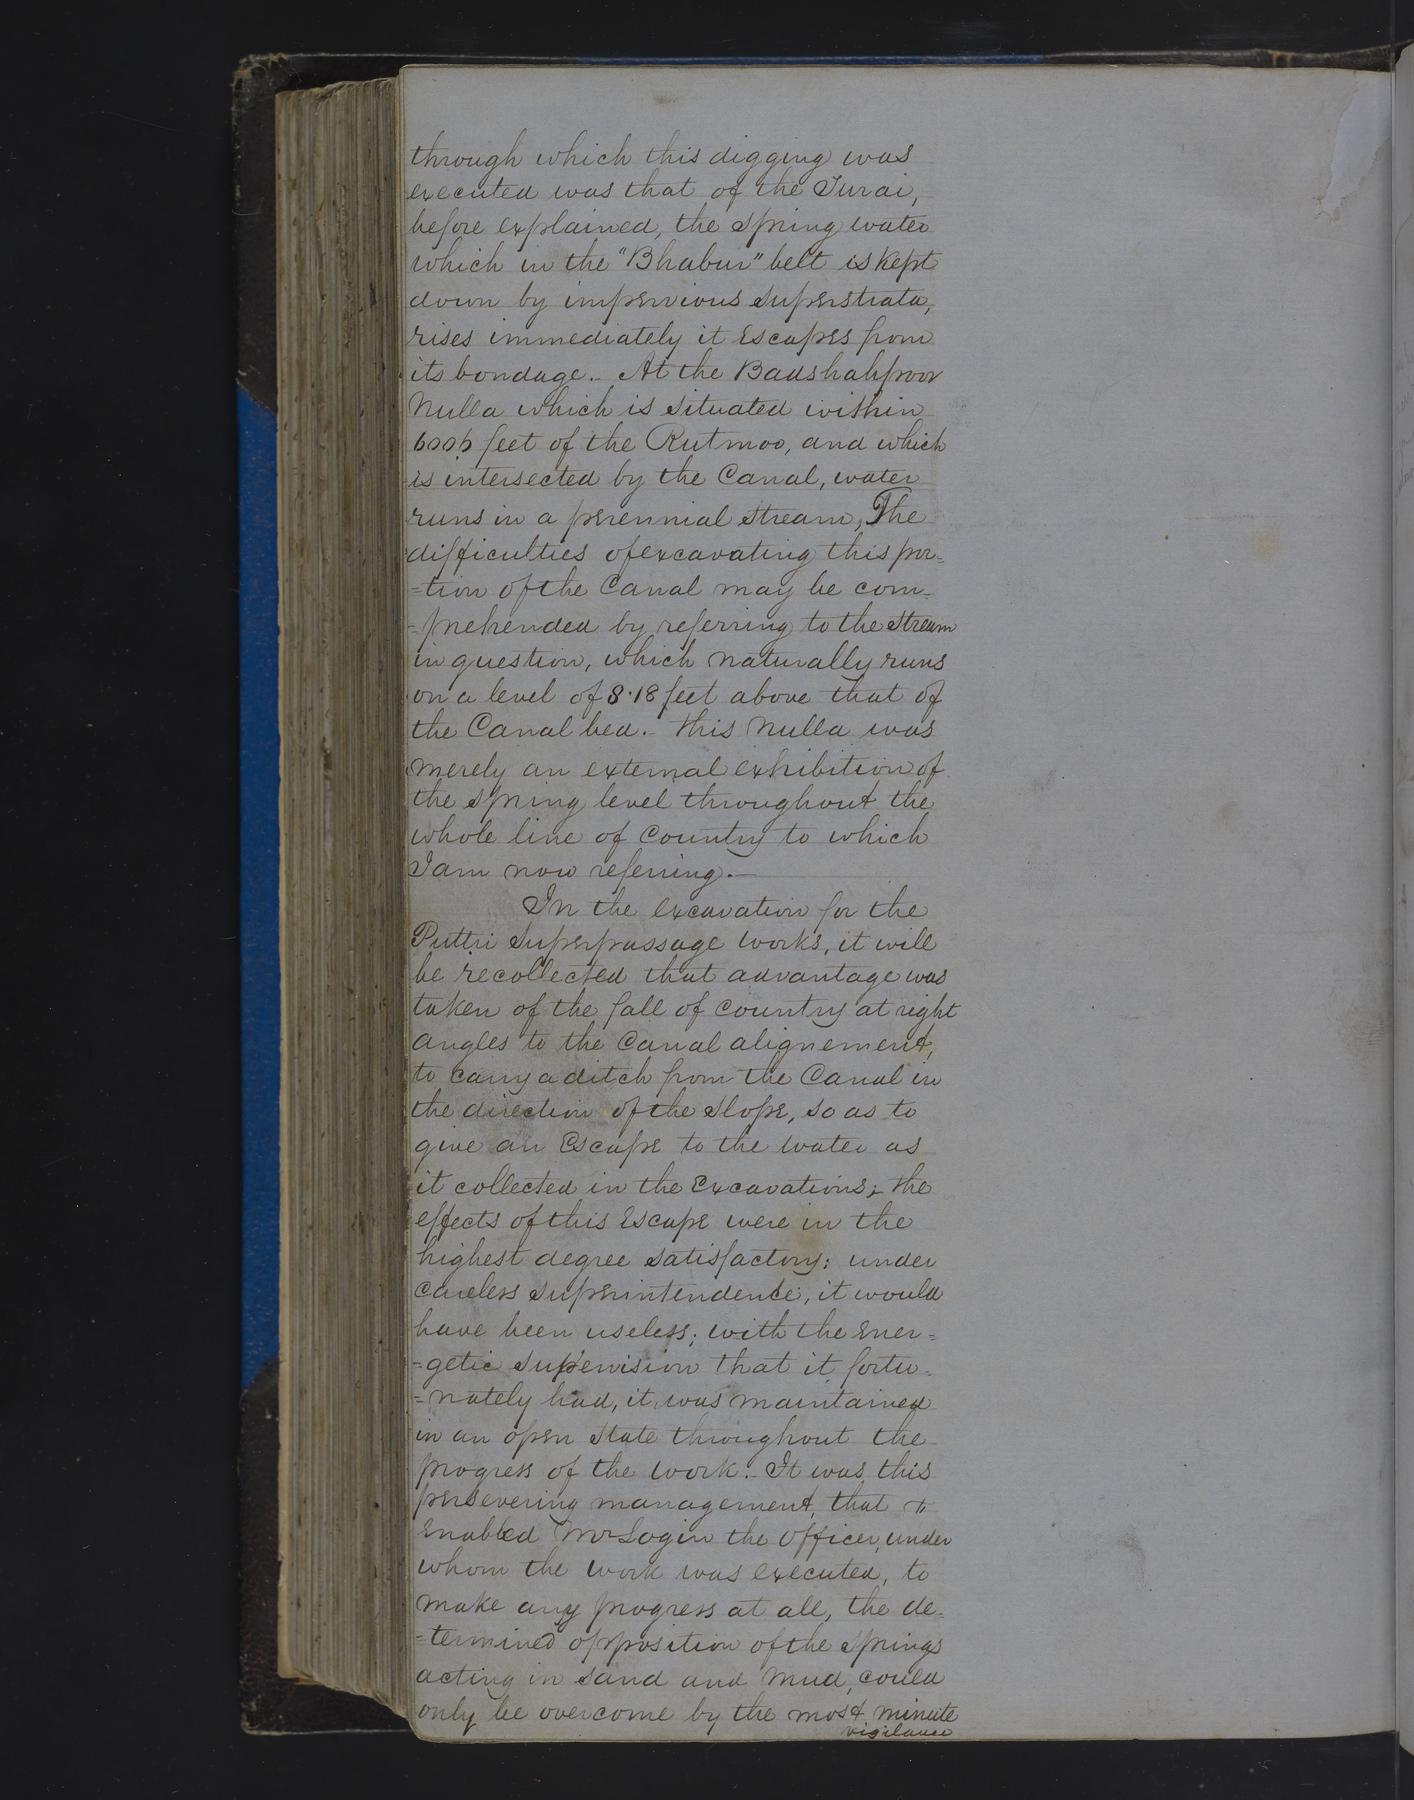 through which this digging was
executed was that of the Turai,
before explained, the spring water
which in the "Bhabur" belt is kept
down by impervious superstrata,
rises immediately it escapes from
its bondage. At the Badshahpoor
Nulla which is situated within
feet of the Rutmoo, and which
is intersected by the Canal, water
runs in a perennial stream, The
difficulties of excavating this por-
=tion of the Canal may be com-
=prehended by referring to the stream
in question, which naturally runs
on a level of 8.18 feet above that of
the Canal bed. This Nulla was
merely an external exhibition of
the spring level throughout the
whole line of Country to which
I am now referring.—
In the excavation for the
Puttri Superpassage works, it will
be recollected that advantage was
taken of the fall of country at right
angles to the Canal alignement,
to carry a ditch from the Canal in
the direction of the slope, so as to
give an Escape to the water as
it collected in the Excavations; the
effects of this Escape were in the
highest degree satisfactory: under
careless superintendence, it would
have been useless; with the ener=
=getic supervision that it fortu-
=nately had, it was maintained
in an open state throughout the
progress of the work. It was this
persevering management, that
enabled Mr Login the officer, under
whom the work was executed, to
make any progress at all, the de=
=termined opposition of the springs
acting in sand and mud, could
only be overcome by the most minute
vigilance